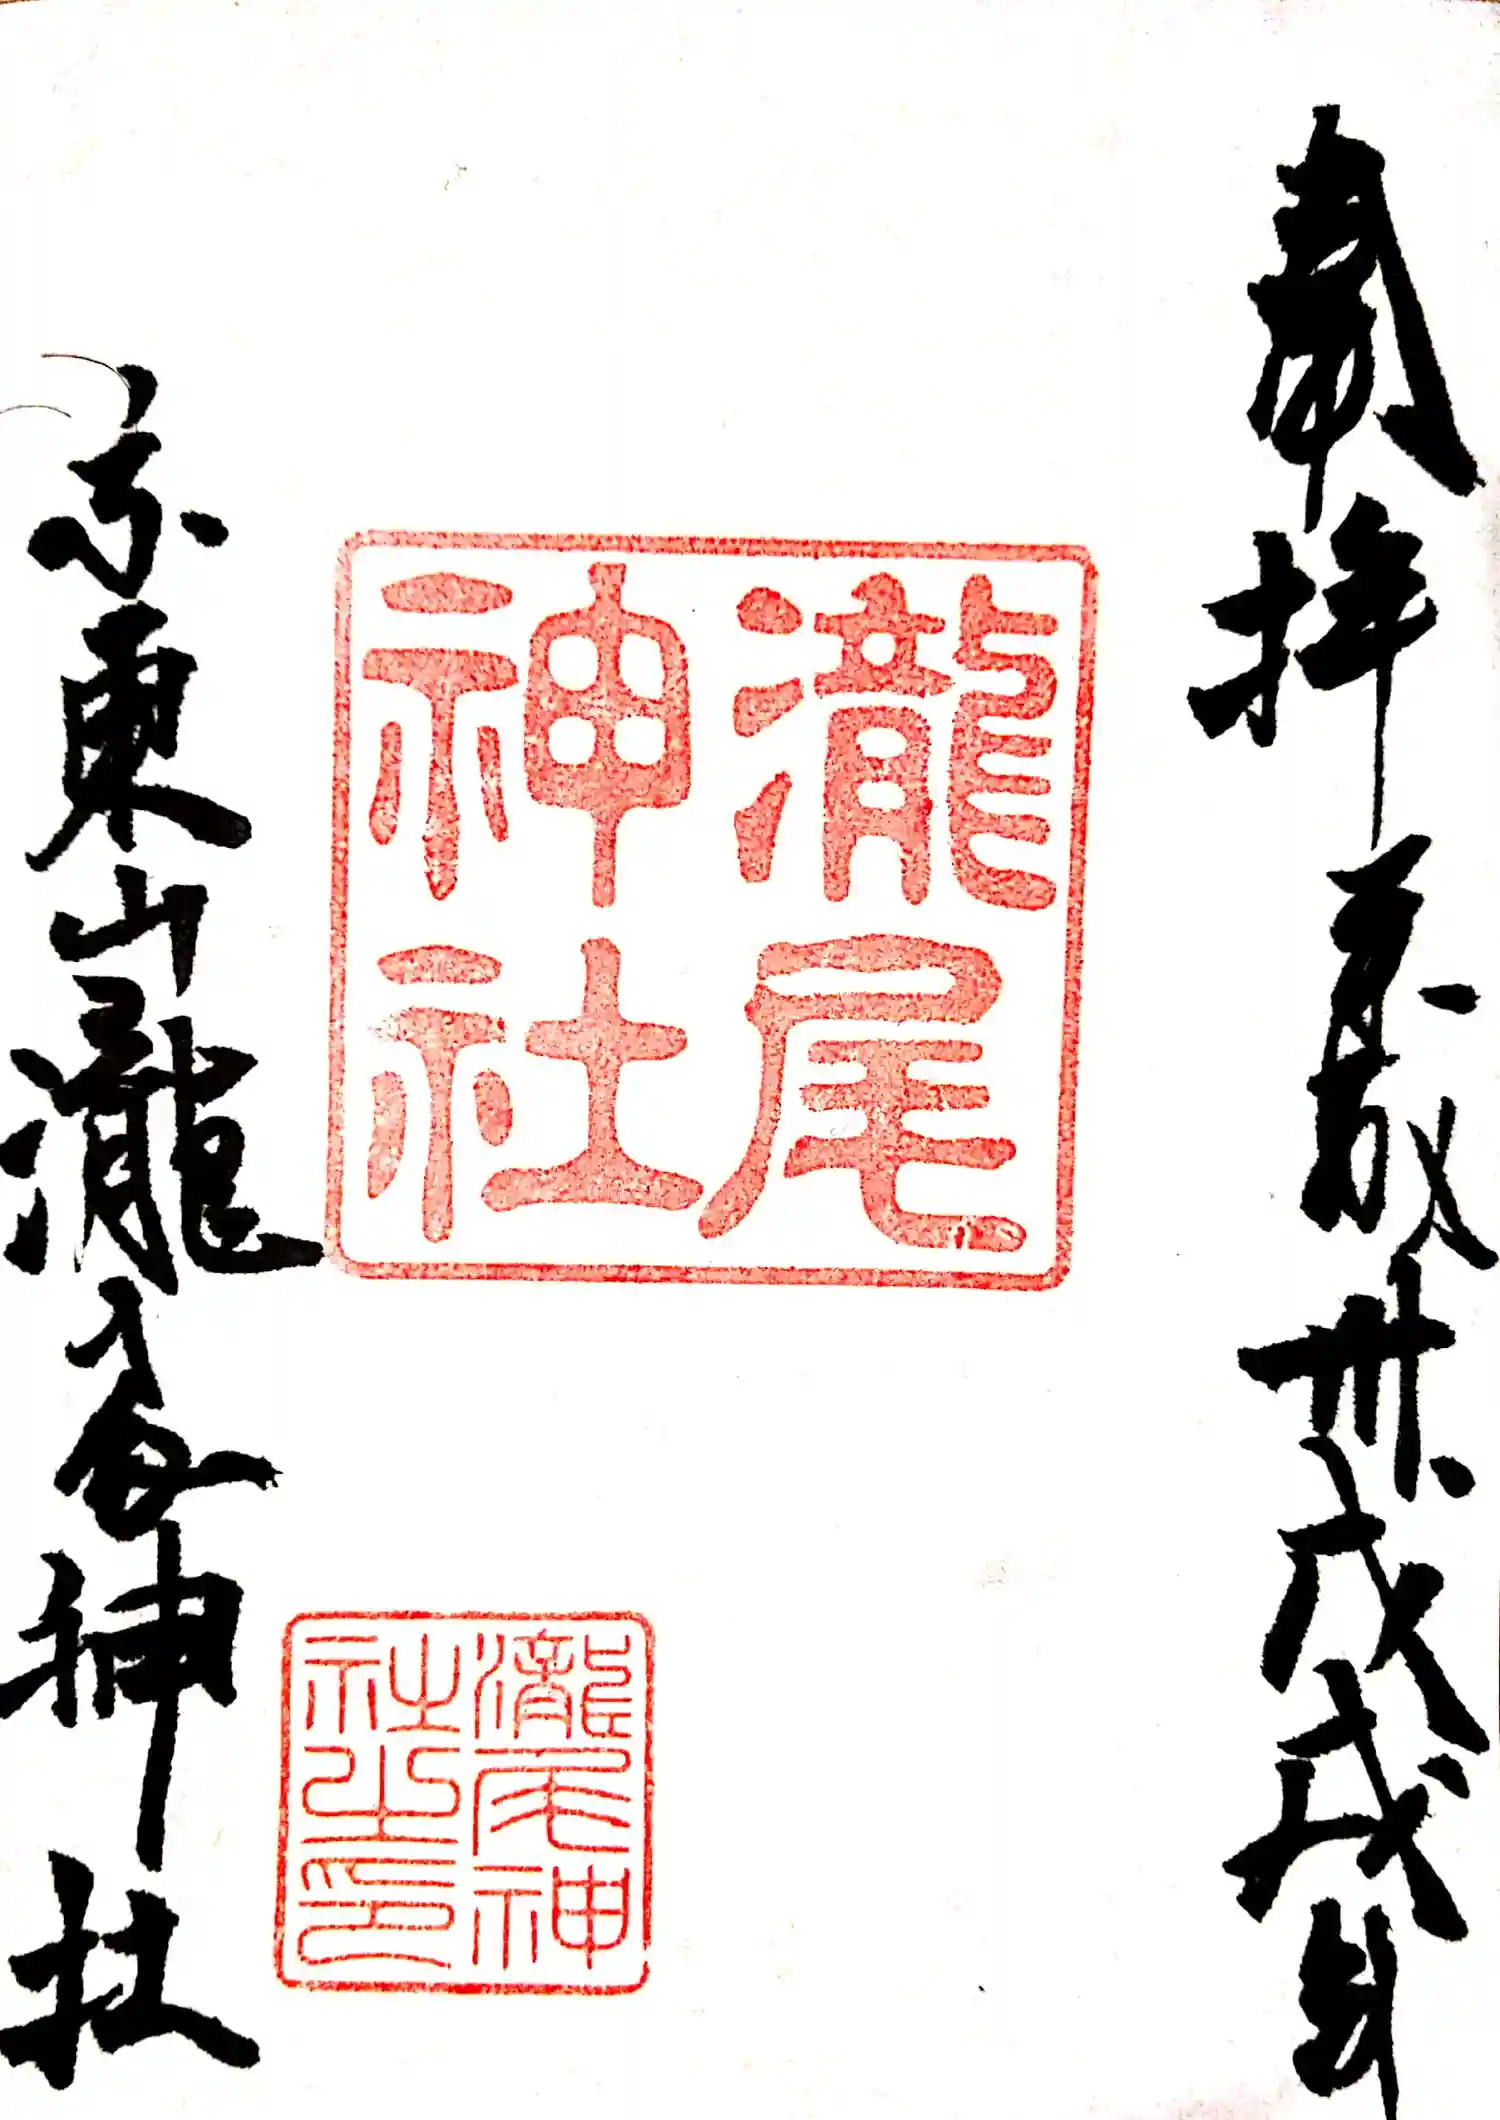 奉拝 卅 戊戌
瀧尾
神社
瀧尾神
社之印
京東山瀧尾神社